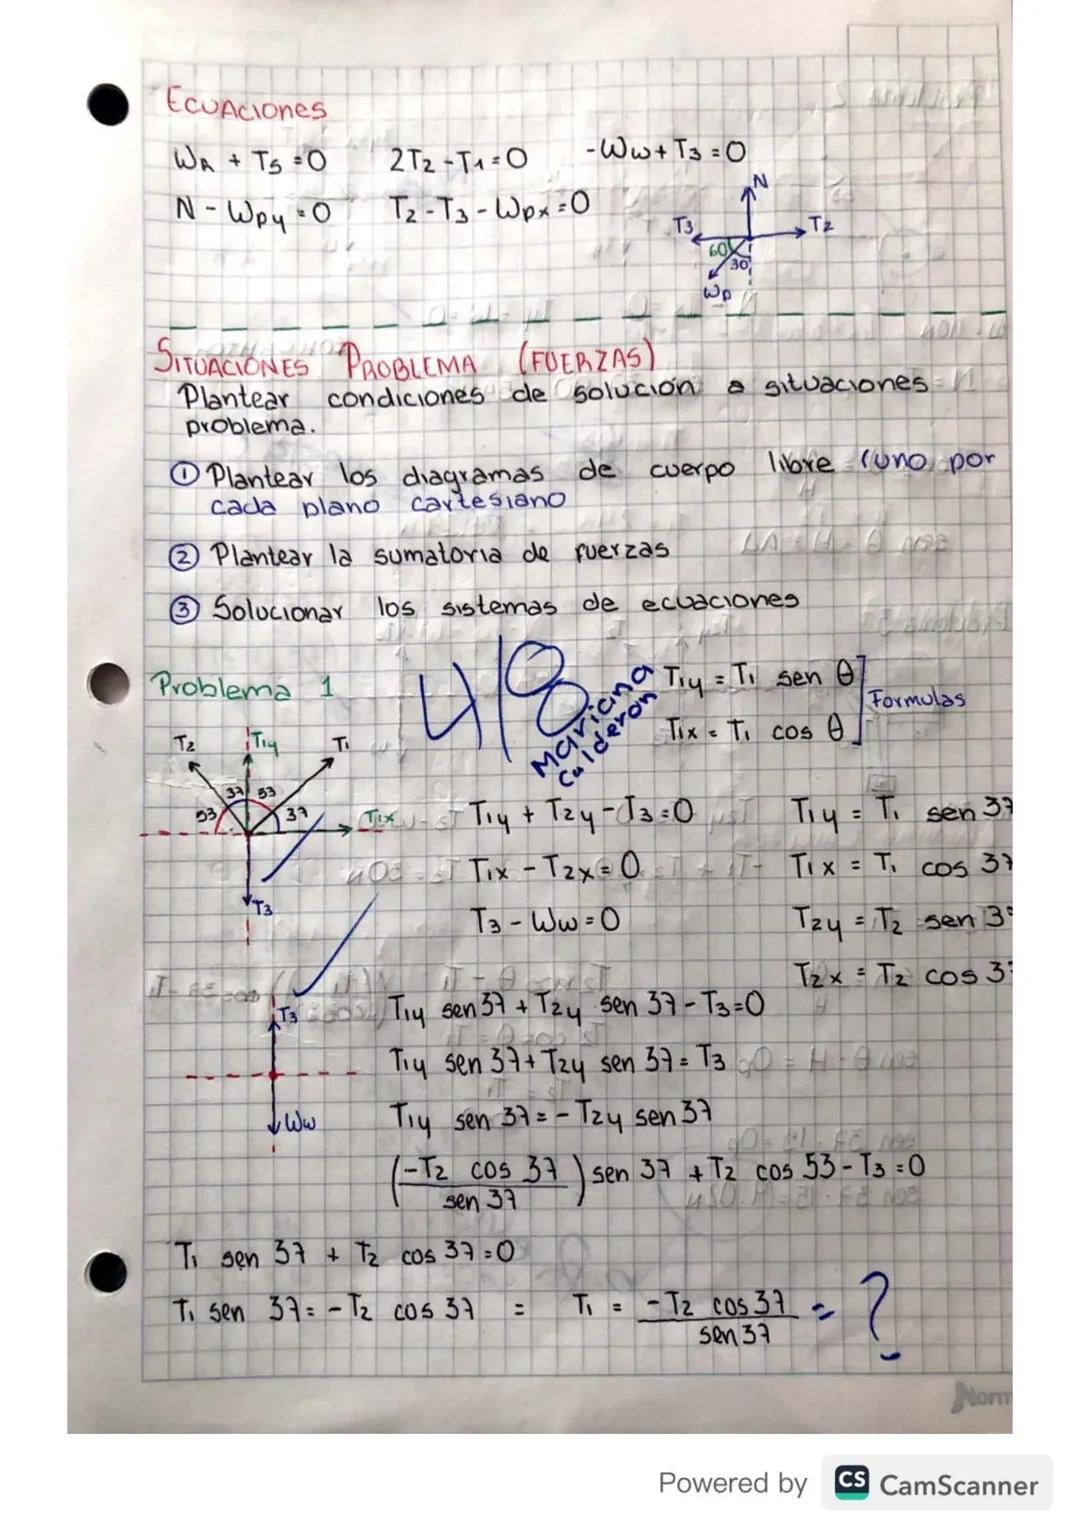 ECUACIONES
WA + T5 = 0 2T2 - T1 = 0 -Ww + T3 = 0
N - Wpy = 0 T2 - T3 - Wpx = 0
N
T3 T2
60
30
Wp
SITUACIONES PROBLEMA (FUERZAS)
Plantear condiciones de solución a situaciones
problema.
① Plantear los diagramas de cuerpo libre (uno por
cada plano cartesiano
② Plantear la sumatoria de fuerzas
③ Solucionar los sistemas de ecuaciones
Problema 1
4/8
Mariana
Calderon
T1y = T1 sen θ
T1x = T1 cos θ
Formulas
T2 T1y T1
37 53
53 37
T1x
T3
T1y + T2y - T3 = 0 T1y = T1 sen 37
T1x - T2x = 0 T1x = T1 cos 37
T3 - Ww = 0 T2y = T2 sen 3
T2x = T2 cos 3
T3
Ww
T1y sen 37 + T2y sen 37 - T3 = 0
T1y sen 37 + T2y sen 37 = T3
T1y sen 37 = - T2y sen 37
(-T2 cos 37 / sen 37) sen 37 + T2 cos 53 - T3 = 0
T1 sen 37 + T2 cos 37 = 0
T1 sen 37 = - T2 cos 37 = T1 = - T2 cos 37 / sen 37 = ?
Norm
Powered by CS CamScanner